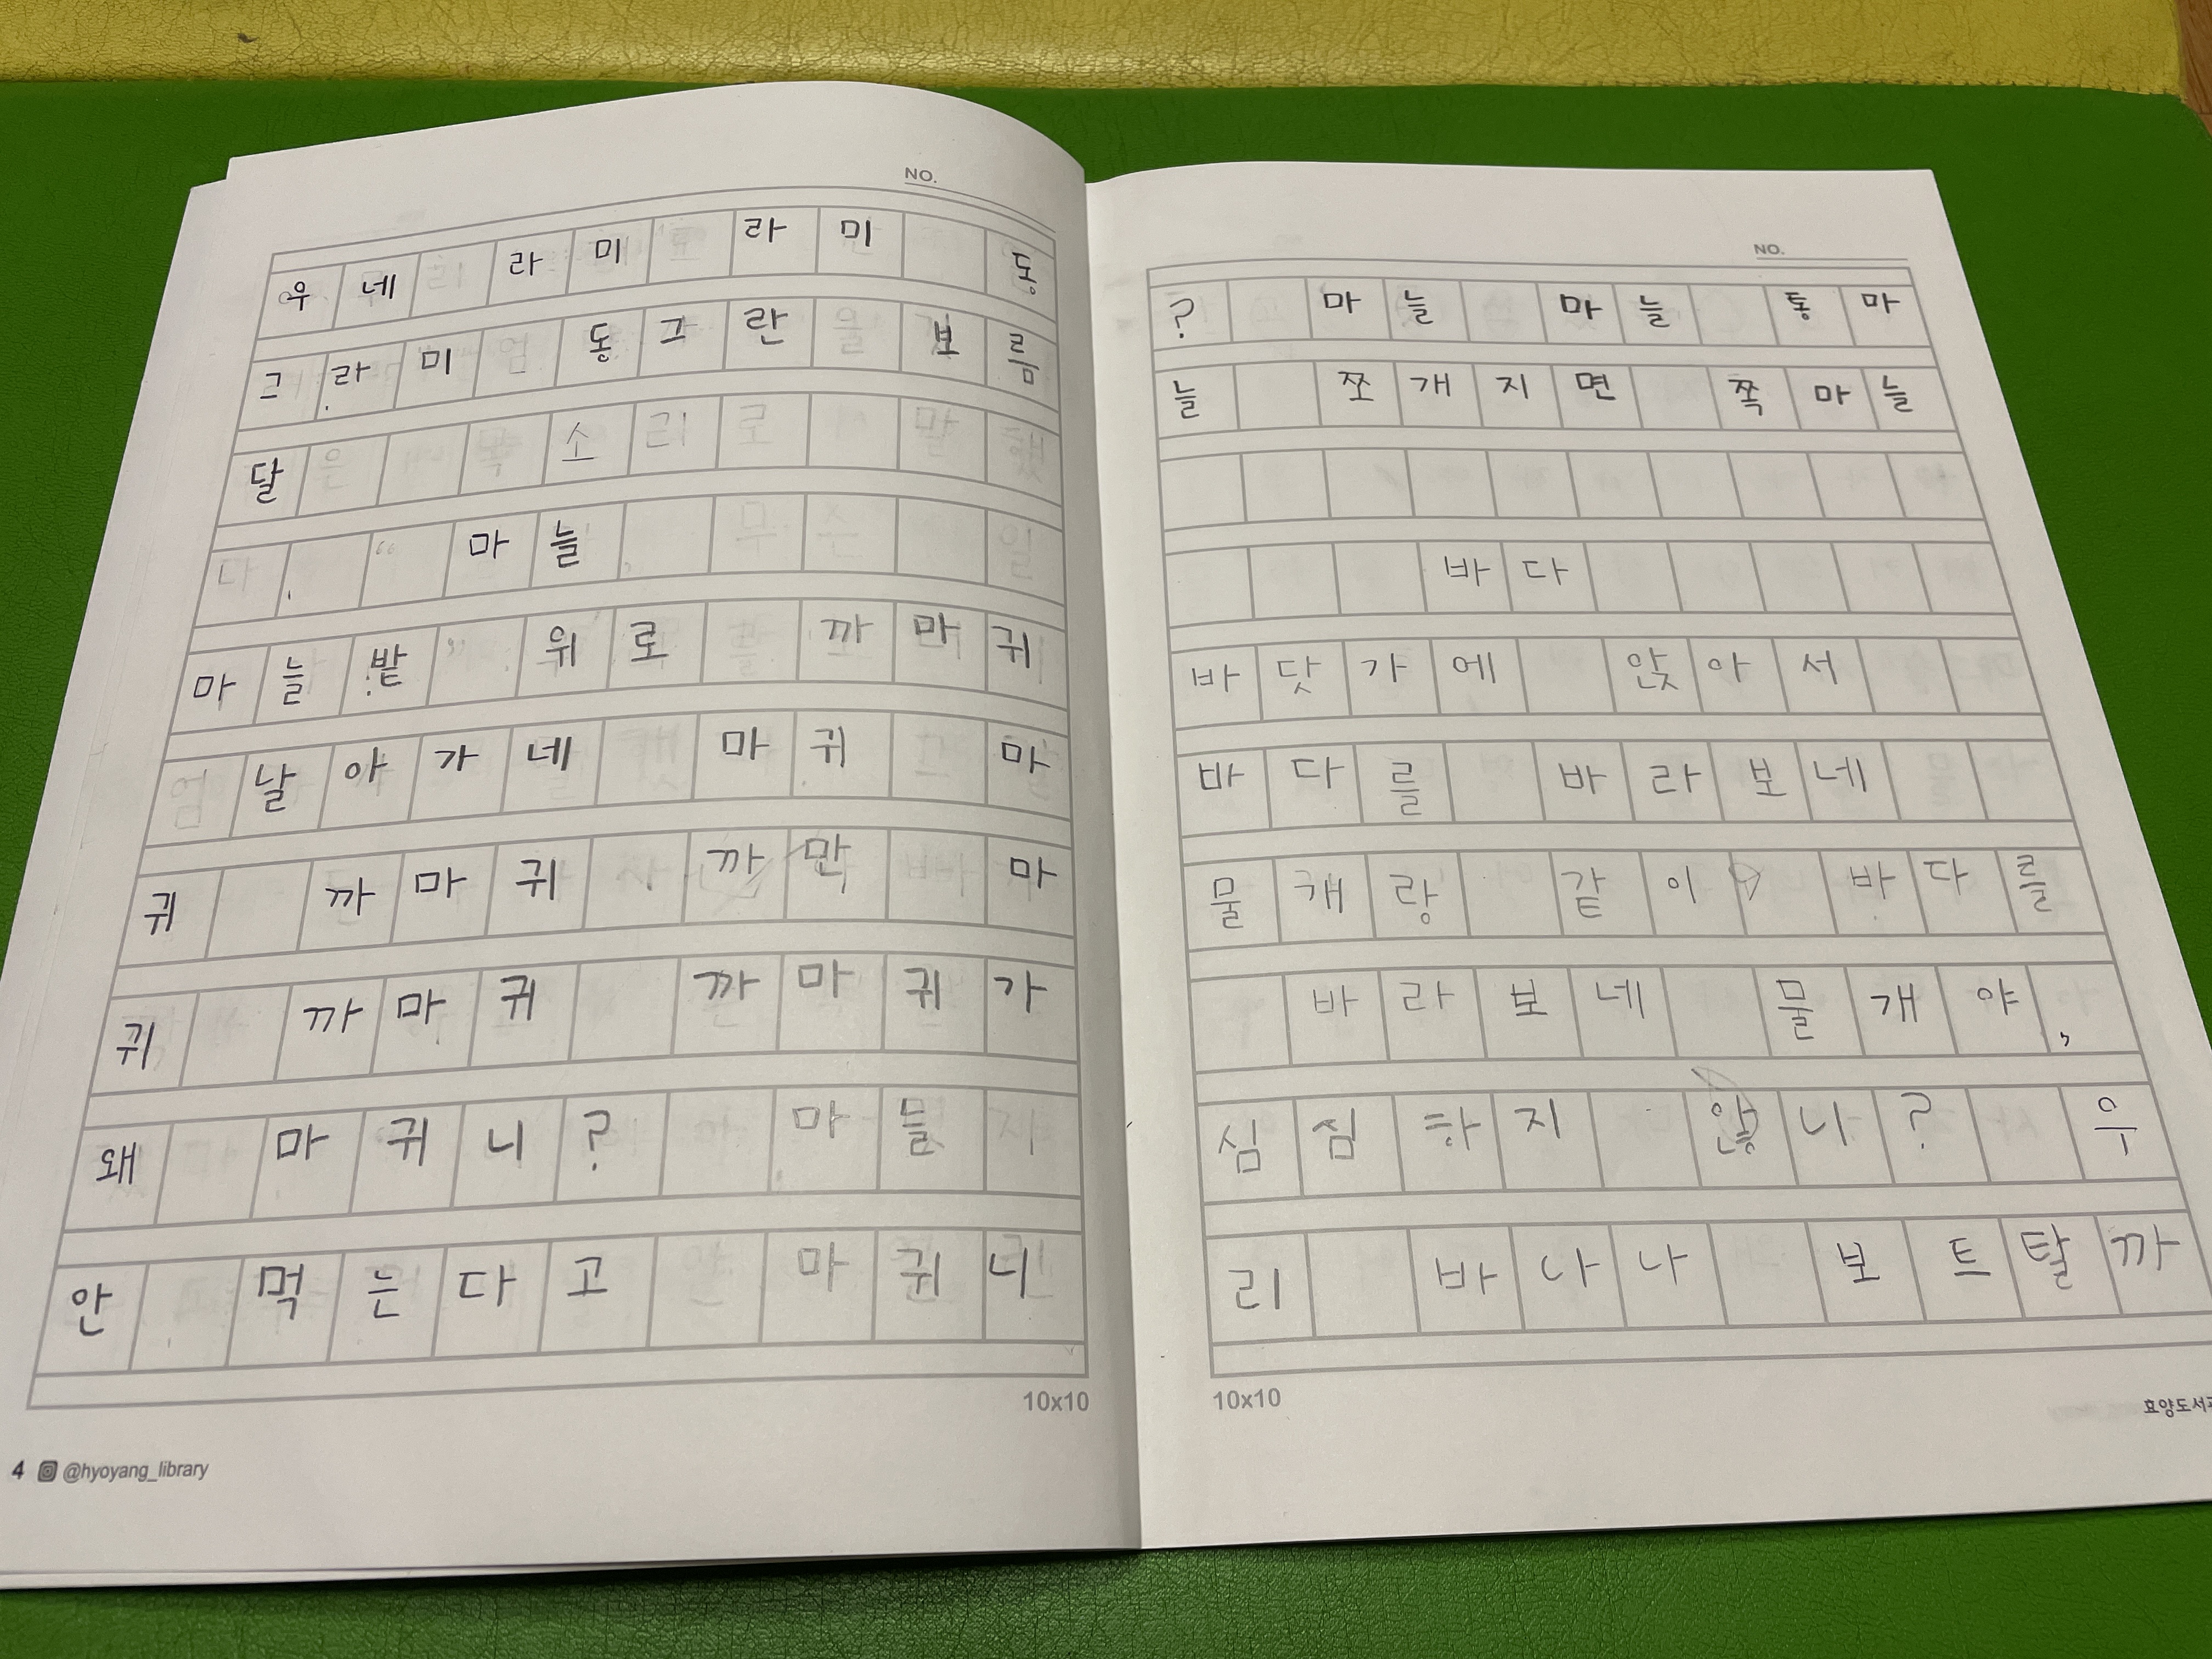 NO.
우네 라미 라미 동
그라미 동그란 보름
달
마늘
마늘밭 위로 까마귀
날아가네 마귀 마
귀 까마귀 까만 마
귀 까마귀 까마귀가
왜 마귀니? 마늘
안 먹는다고 마귀니
10x10
4 @hyoyang_library
NO.
? 마늘 마늘 통마
늘 쪼개지면 쪽마늘
바다
바닷가에 앉아서
바다를 바라보네
물개랑 같이 바다를
바라보네 물개야,
심심하지 않니?  우
리 바나나 보트탈까
10x10
효양도서관